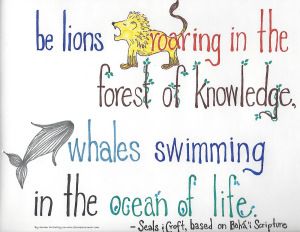 be lions roaring in the
forest of knowledge,
whales swimming
in the ocean of life.
- Seals & Croft, based on Bahá'í Scripture